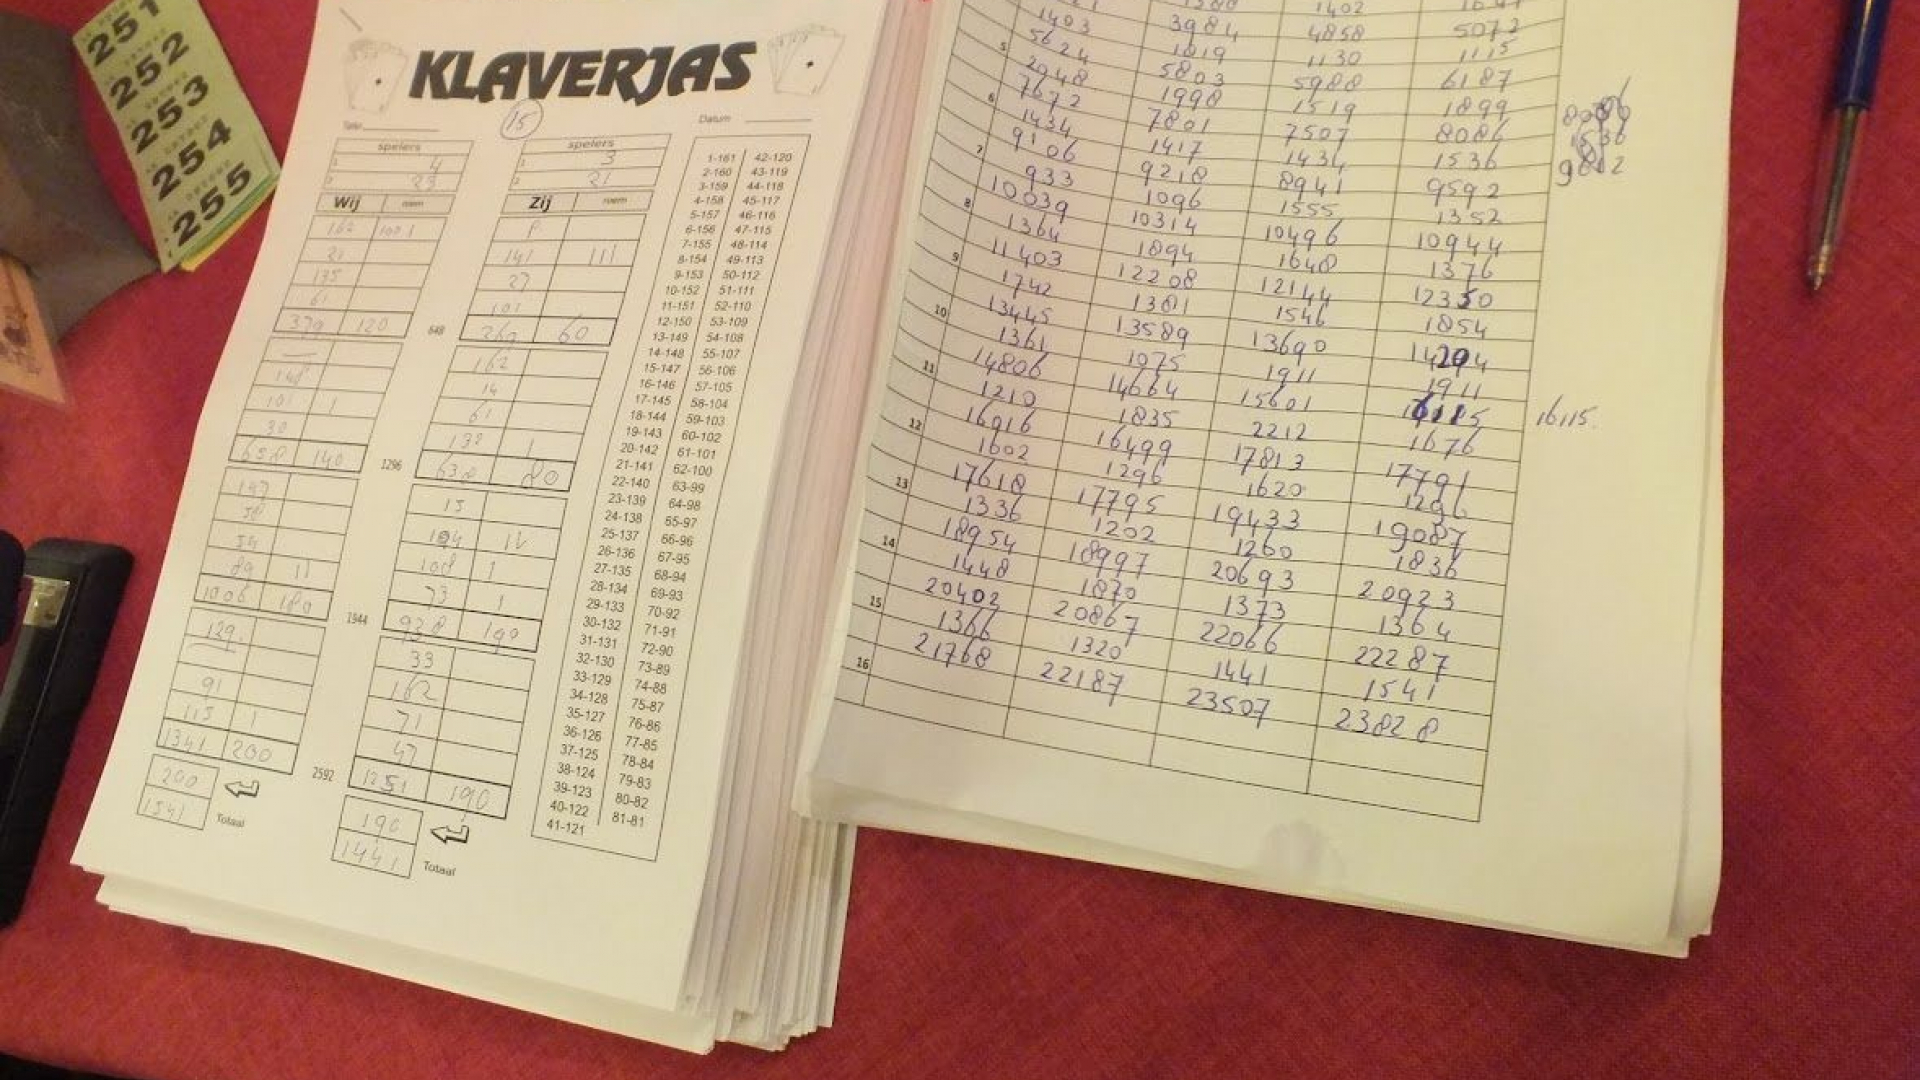 251
252
253
254
255
KLAVERJAS
15
Datum
spelers
1 4
2 23
spelers
1 3
2 21
Wij roem
Zij roem
162 100 1
21
135
61
379 120
P
141 111
27
101
260 60
648
148
101 1
30
658 140
162
14
61
132 1
638 80
1296
54
89 11
1006 180
15
104 11
108 1
73 1
938 190
1944
129
91
115 1
1341 200
33
162
71
47
1251 190
2592
200
1541
Totaal
190
1441
Totaal
1-161 42-120
2-160 43-119
3-159 44-118
4-158 45-117
5-157 46-116
6-156 47-115
7-155 48-114
8-154 49-113
9-153 50-112
10-152 51-111
11-151 52-110
12-150 53-109
13-149 54-108
14-148 55-107
15-147 56-106
16-146 57-105
17-145 58-104
18-144 59-103
19-143 60-102
20-142 61-101
21-141 62-100
22-140 63-99
23-139 64-98
24-138 65-97
25-137 66-96
26-136 67-95
27-135 68-94
28-134 69-93
29-133 70-92
30-132 71-91
31-131 72-90
32-130 73-89
33-129 74-88
34-128 75-87
35-127 76-86
36-126 77-85
37-125 78-84
38-124 79-83
39-123 80-82
40-122 81-81
41-121
1402
1403 3984 4858 5072
5 5624 1819 1130 1115
2048 5803 5988 6187
6 7672 1998 1519 1899
1434 7801 7507 8086
7 9106 1417 1434 1536
933 9218 8941 9592 9812
8 10039 1096 1555 1352
1364 10314 10496 10944
9 11403 1894 1648 1376
1742 12208 12144 12350
10 13445 1381 1546 1854
1361 13589 13690 14204
11 14806 1075 1911 1911
1210 14664 15601 16115 16115.
12 16016 1835 2212 1676
1602 16499 17813 17791
13 17618 1296 1620 1296
1336 17795 19433 19087
14 18954 1202 1260 1836
1448 18997 20693 20923
15 20402 1870 1373 1364
1366 20867 22066 22287
16 21768 1320 1441 1541
22187 23507 23828